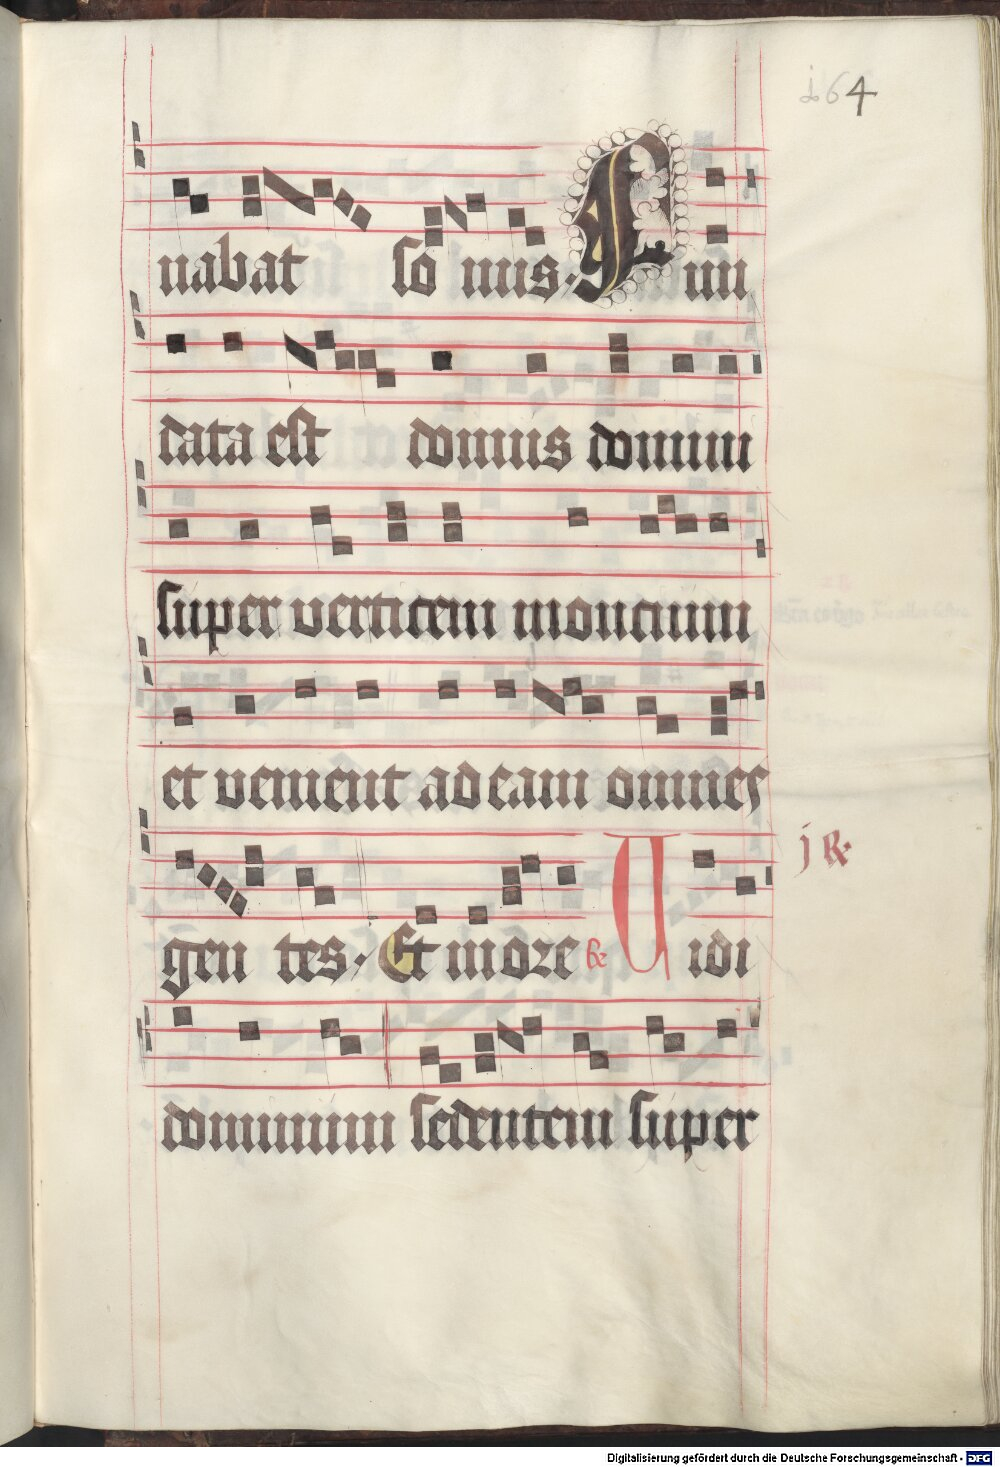 164
nabat so nus. Fun
data est domus domini
super verticem montium
et venient ad eam omnes
gen tes. Et in dextre R. Vidi
j R.
dominum sedentem super
Digitalisierung gefördert durch die Deutsche Forschungsgemeinschaft - DFG